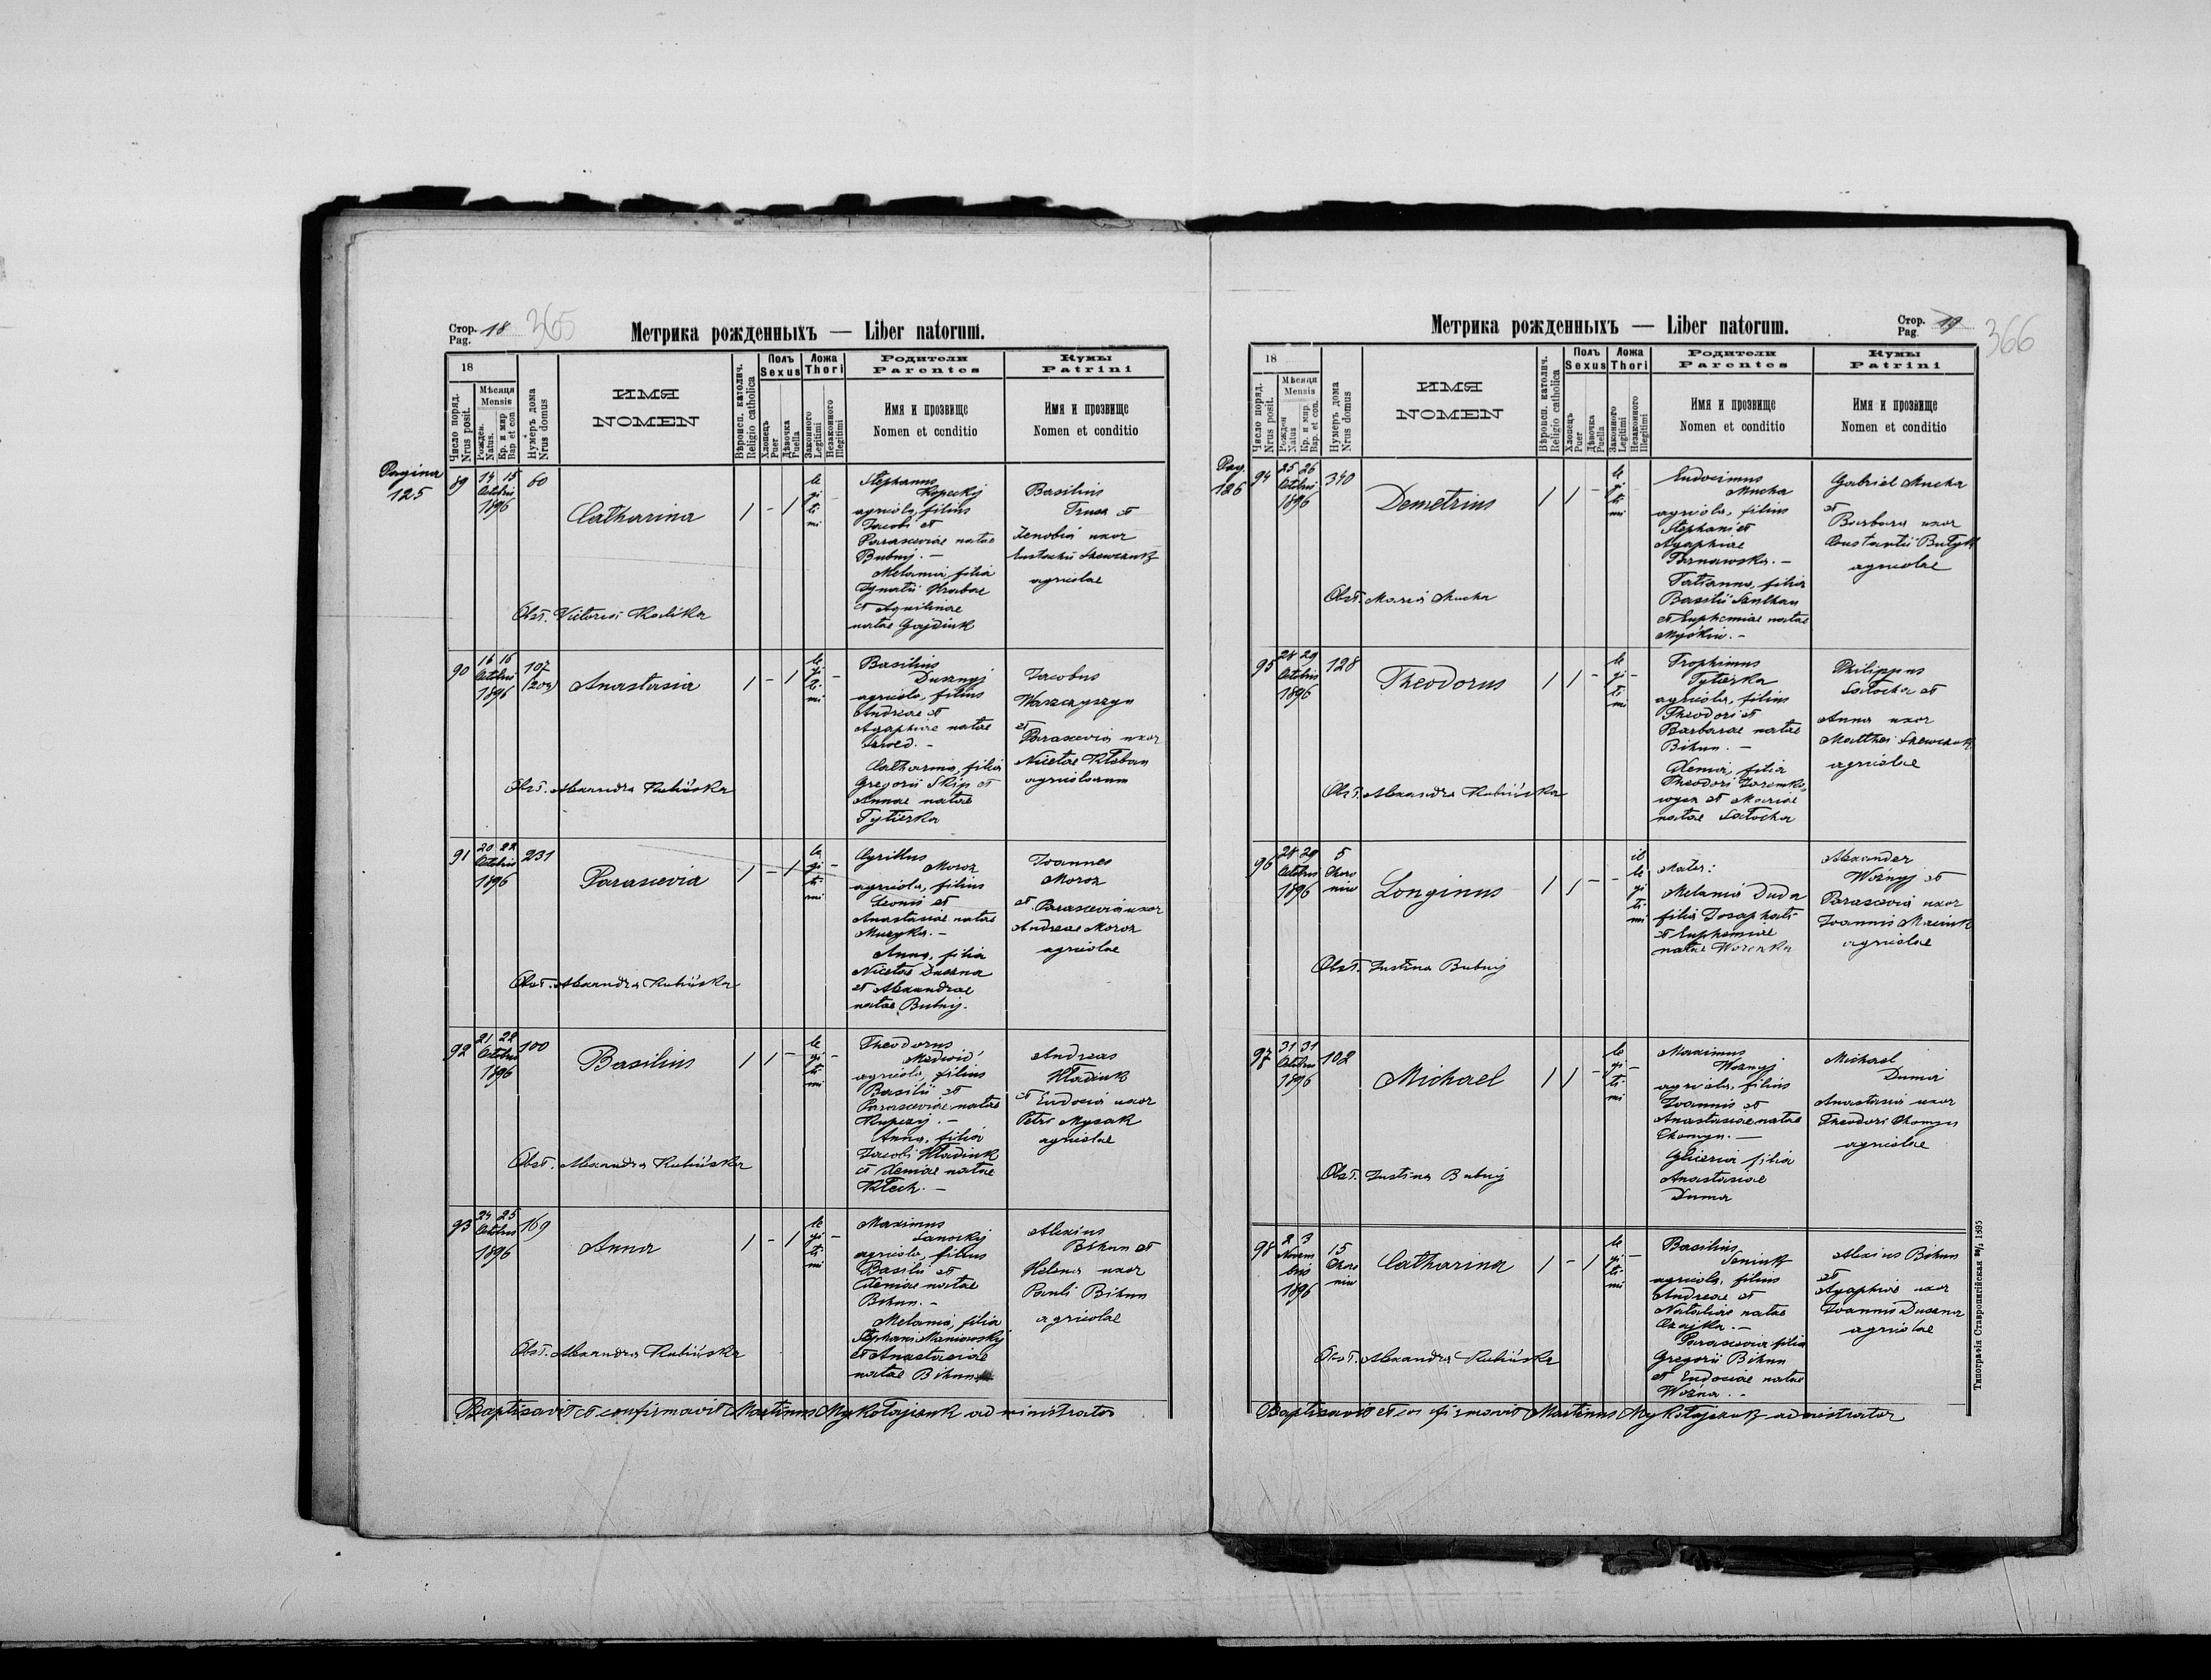 Стор. 18 365
Pag.
Метрика рожденныхъ — Liber natorum.
18
Число поряд. Nrus posit.
Мѣсяця Mensis
Рожден. Natus.
Кр. и мир Bap et con
Нумеръ дома Nrus domus
ИМЯ
NOMEN
Вѣроисп. католич. Religio catholica
Полъ Sexus
Хлопець Puer
Дѣвочка Puella
Ложа Thori
Законного Legitimi
Незаконного Illegitimi
Родители
Parentes
Имя и прозвище
Nomen et conditio
Кумы
Patrini
Имя и прозвище
Nomen et conditio
Pagina
125
89 14 15 Octobris 1896 60
Catharina
1 - 1 legitimi -
Stephanus
Kopeckij
agricola, filius
Jacobi et
Parasceviae natae
Bubnij. —
Melania filia
Ignatii Hrabae
et Aquilinae
natae Gajdiuk
Basilius
Trusz et
Zenobia uxor
Eustachii Szewczuk
agricolae
Obst. Victoria Kulika
90 16 16 Octobris 1896 107 (204)
Anastasia
1 - 1 legitimi -
Basilius
Dusznyj
agricola, filius
Andreae et
Agaphiae natae
Szwed. -
Catharina, filia
Gregorii Skip et
Annae natae
Tytierka
Jacobus
Waszczyszyn
et
Parascevia uxor
Nicetae Kłoban
agricolarum
Obst. Alexandra Kubińska
91 20 22 Octobris 1896 231
Parascevia
1 - 1 legitimi -
Cyrillus
Moroz
agricola, filius
Leonis et
Anastasiae natae
Muzyka. —
Anna, filia
Nicetae Duszna
et Alexandrae
natae Bubnij.
Joannes
Moroz
et Parascevia uxor
Andreae Moroz
agricolae
Obst. Alexandra Kubińska
92 21 22 Octobris 1896 100
Basilius
1 1 - legitimi -
Theodorus
Medwid
agricola, filius
Basilii et
Parasceviae natae
Kupczij. —
Anna, filia
Jacobi Hładiuk
et Xeniae natae
Klech. —
Andreas
Hładiuk
et Eudocia uxor
Petri Mysak
agricolae
Obst. Alexandra Kubińska
93 24 25 Octobris 1896 169
Anna
1 - 1 legitimi -
Maximus
Sanockij
agricola, filius
Basilii et
Xeniae natae
Bihun. -
Melania, filia
Stephani Maniowskij
et Anastasiae
natae Bihun
Alexius
Bihun et
Helena uxor
Pauli Bihun
agricolae
Obst. Alexandra Kubińska
Baptisavit et confirmavit Martinus Mykołajczuk administrator
Метрика рожденныхъ — Liber natorum.
Стор. 19 366
Pag.
18
Число поряд. Nrus posit.
Мѣсяця Mensis
Рожден Natus
Кр. и мир Bap. et con.
Нумеръ дома Nrus domus
ИМЯ
NOMEN
Вѣроисп. католич. Religio catholica
Полъ Sexus
Хлопець Puer
Дѣвочка Puella
Ложа Thori
Законного Legitimi
Незаконного Illegitimi
Родители
Parentes
Имя и прозвище
Nomen et conditio
Кумы
Patrini
Имя и прозвище
Nomen et conditio
Pag.
126
94 25 26 Octobris 1896 340
Demetrius
1 1 - legitimi -
Eudocimus
Mucha
agricola, filius
Stephani et
Agaphiae
Tarnawska. —
Tatianna, filia
Basilii
et Euphemiae natae
Myśkiw. -
Gabriel Mucha
et
Barbara uxor
Constantii Bułyk
agricolae
Obst. Maria Mucha
95 28 29 Octobris 1896 128
Theodorus
1 1 - legitimi -
Trophimus
Tytierka
agricola, filius
Theodori et
Barbarae natae
Bihun. —
Xenia, filia
Theodori Jaremko-
wycz et Mariae
natae Sołocha
Philippus
Sołocha et
Anna uxor
Matthei Szewczuk
agricolae
Obst. Alexandra Kubińska
96 28 29 Octobris 1896 5 Choroniw
Longinus
1 1 - - illegitimi
Mater:
Melania Duda
filia Josaphati
et Euphemiae
natae Worenka
Alexander
Woznyj et
Parascevia uxor
Joannis Maciuk
agricolae
Obst. Justina Bubnij
97 31 31 Octobris 1896 102
Michael
1 1 - legitimi -
Maximus
Woznyj
agricola, filius
Joannis et
Anastasiae natae
Chomyn. —
Gliceria filia
Anastasiae
Duma
Michael
Duma
Anastasia uxor
Theodori Chomyn
agricolae
Obst. Justina Bubnij
98 2 3 Novembris 1896 15 Choroniw
Catharina
1 - 1 legitimi -
Basilius
Seniuk
agricola, filius
Andreae et
Nataliae natae
Czajka. —
Parascevia filia
Gregorii Bihun
et Eudociae natae
Woźna. -
Alexius Bihun
et
Agaphia uxor
Joannis Duszna
agricolae
Obst. Alexandra Kubińska
Baptisavit et confirmavit Martinus Mykołajczuk administrator
Типографія Ставропигійская 1895